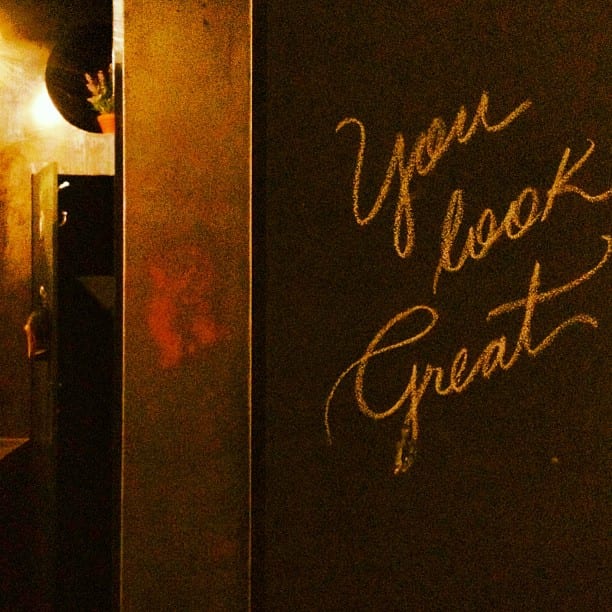 You
look
Great